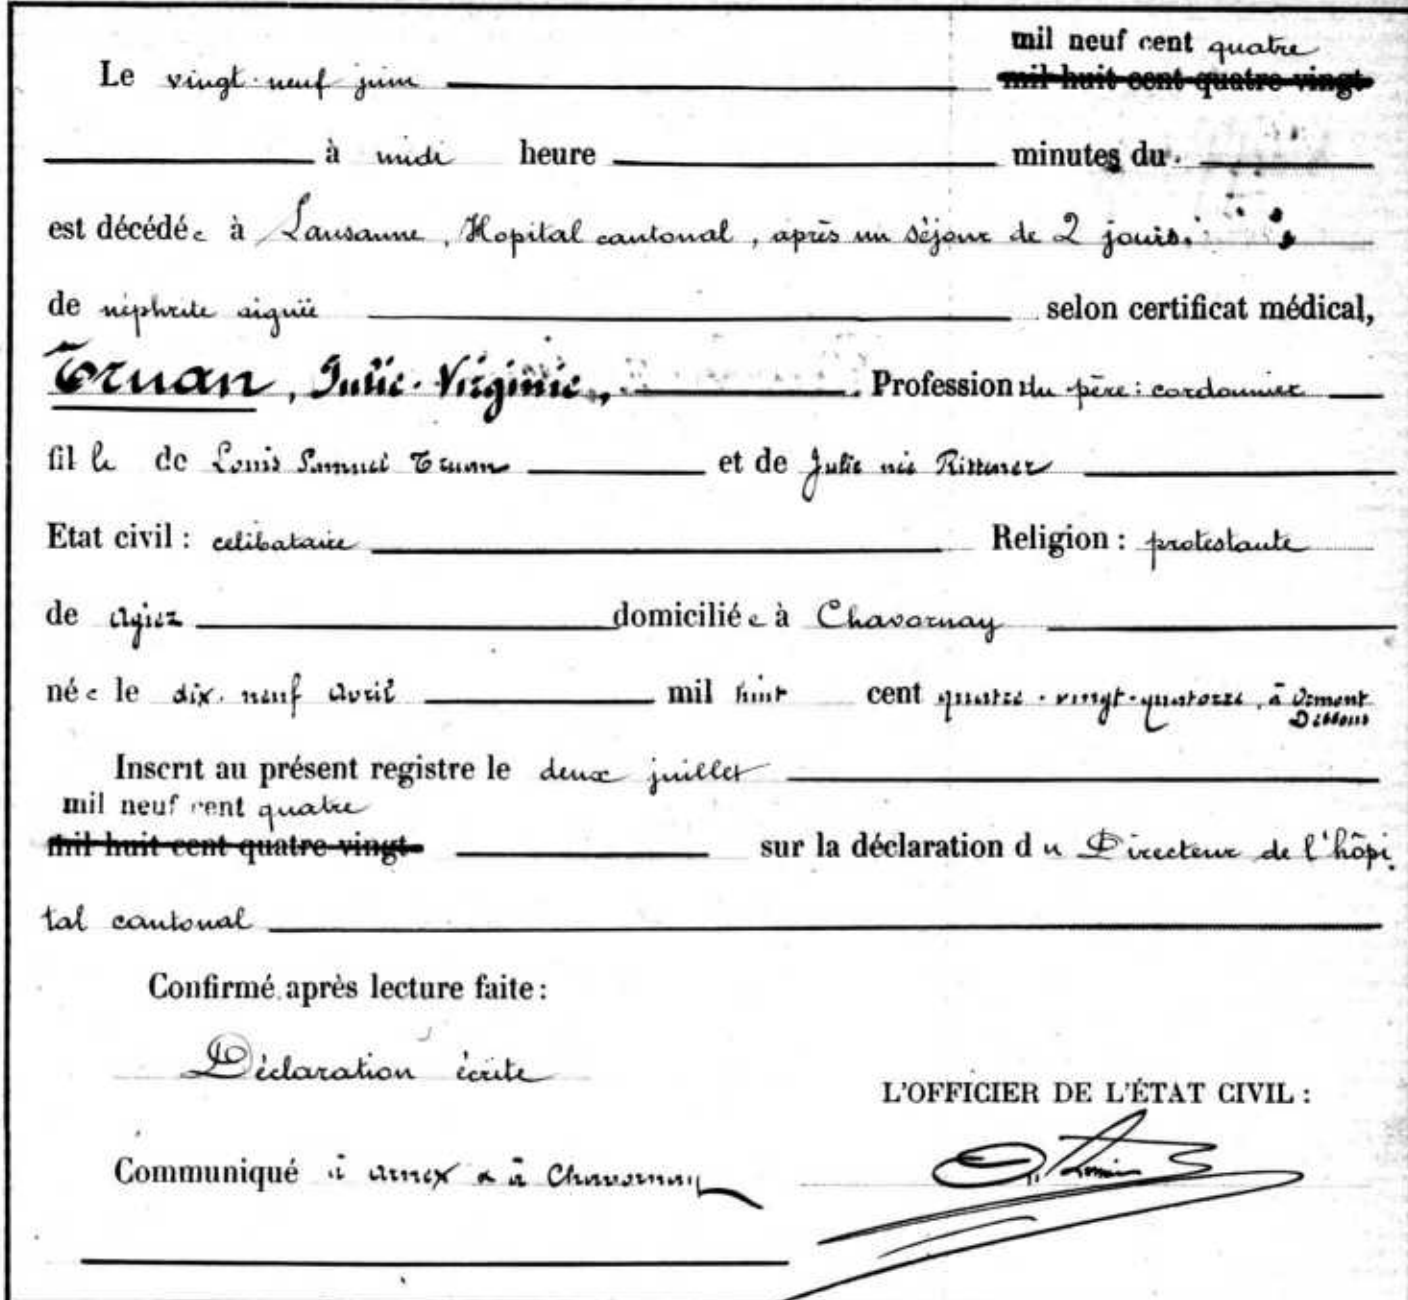 mil neuf cent quatre
Le vingt-neuf juin mil huit cent quatre-vingt
à midi heure minutes du
est décédée à Lausanne, Hopital cantonal, après un séjour de 2 jours.
de néphrite aiguë selon certificat médical,
Truan, Julie-Virginie, Profession du père: cordonnier
fille de Louis Samuel Truan et de Julie née Rittener
Etat civil : célibataire Religion : protestante
de Agiez domiciliée à Chavornay
née le dix-neuf Avril mil huit cent quatre-vingt-quatorze, à Ormont
Dessous
Inscrit au présent registre le deux juillet
mil neuf cent quatre
mil huit cent quatre-vingt sur la déclaration du Directeur de l'hôpi
tal cantonal
Confirmé après lecture faite :
Déclaration écrite
L'OFFICIER DE L'ÉTAT CIVIL :
Communiqué à Arnex & à Chavornay